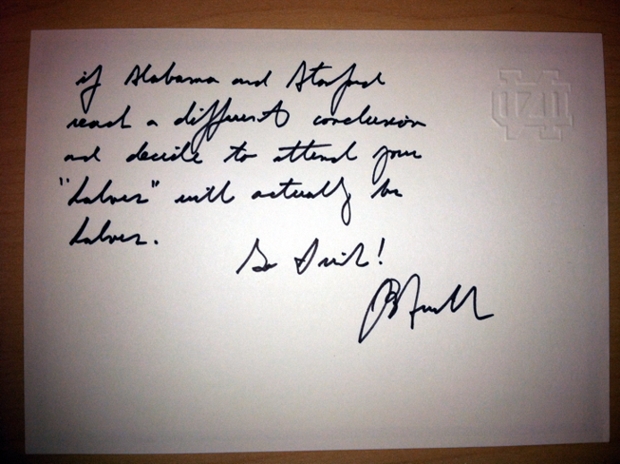 if Alabama and Stanford
reach a different conclusion
and decide to attend your
"halves" will actually be
halves.
Go Irish!